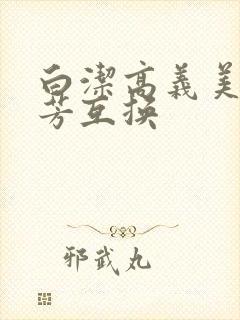 白潔高義美
芳互换
邪武丸